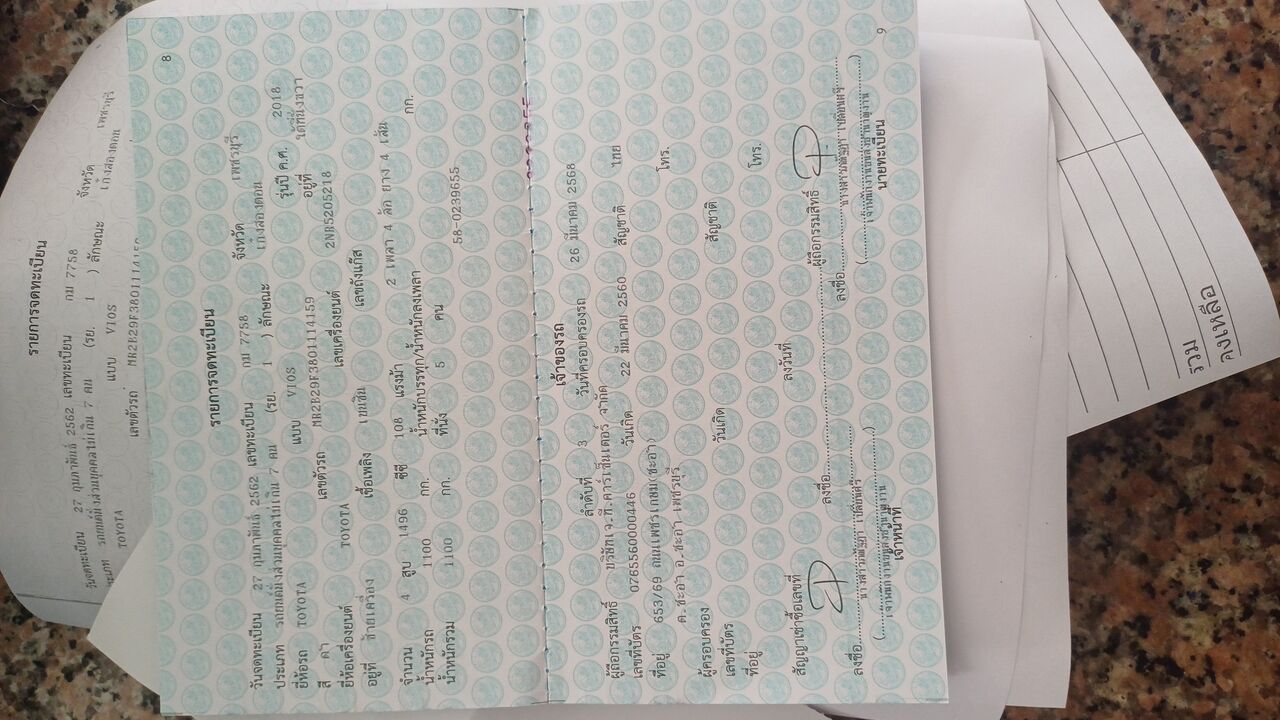 รายการจดทะเบียน
วันจดทะเบียน 27 กุมภาพันธ์ 2562 เลขทะเบียน กม 7758 จังหวัด เพชรบุรี
ประเภท รถยนต์นั่งส่วนบุคคลไม่เกิน 7 คน (รย. 1 ) ลักษณะ เก๋งสองตอน
TOYOTA แบบ VIOS
เลขตัวรถ
8
รายการจดทะเบียน
วันจดทะเบียน 27 กุมภาพันธ์ 2562 เลขทะเบียน กม 7758 จังหวัด เพชรบุรี
ประเภท รถยนต์นั่งส่วนบุคคลไม่เกิน 7 คน (รย. 1 ) ลักษณะ เก๋งสองตอน
ยี่ห้อรถ TOYOTA แบบ VIOS รุ่นปี ค.ศ. 2018
สี ดำ เลขตัวรถ MR2B29F3801114159 อยู่ที่ ใต้ที่นั่งขวา
ยี่ห้อเครื่องยนต์ TOYOTA เลขเครื่องยนต์ 2NR5205218
อยู่ที่ ซ้ายเครื่อง เชื้อเพลิง เบนซิน เลขถังแก๊ส
จำนวน 4 สูบ 1496 ซีซี 108 แรงม้า 2 เพลา 4 ล้อ ยาง 4 เส้น
น้ำหนักรถ 1100 กก. น้ำหนักบรรทุก/น้ำหนักลงเพลา กก.
น้ำหนักรวม 1100 กก. ที่นั่ง 5 คน
58-0239655
เจ้าของรถ
ลำดับที่ 3 วันที่ครอบครองรถ 26 มีนาคม 2568
ผู้ถือกรรมสิทธิ์ บริษัทเจ.ที.คาร์เซ็นเตอร์ จำกัด
เลขที่บัตร 0765560000446 วันเกิด 22 มีนาคม 2560 สัญชาติ ไทย
ที่อยู่ 653/69 ถนนเพชรเกษม(ชะอำ) โทร.
ต.ชะอำ อ.ชะอำ เพชรบุรี
ผู้ครอบครอง
เลขที่บัตร วันเกิด สัญชาติ
ที่อยู่ โทร.
สัญญาเช่าซื้อเลขที่ ลงวันที่
ลงชื่อ ผู้ถือกรรมสิทธิ์
ลงชื่อ ลงชื่อ
เจ้าหน้าที่ นายทะเบียน
9
รวม
คงเหลือ